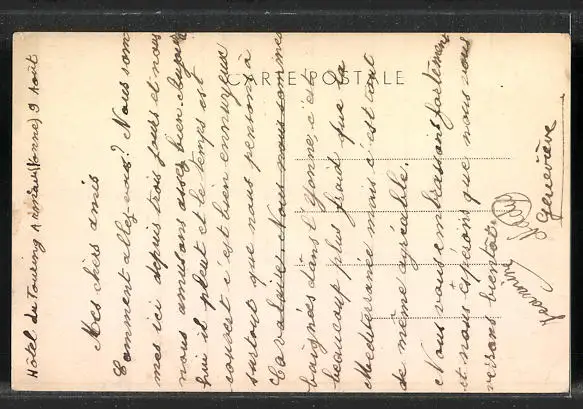 CARTE POSTALE
Hôtel du Touring (Yonne) 9 Août
Mes chers amis
Comment allez vous? Nous som
mes ici depuis trois jours et nous
nous amusons assez bien. Aujourd
hui il pleut et le temps est
couvert c'est bien ennuyeux
surtout que nous pensions à
Cavalaire. Nous nous sommes
baignés dans l'Yonne, c'est
beaucoup plus froid que la
Mediterranée mais c'est tout
de même agréable.
Nous vous embrassons fortement
et nous espérons que nous vous
verrons bientôt.
Jeannine
Geneviève